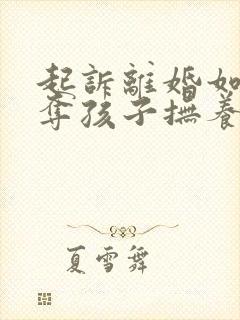 起訴離婚如
奪孩子撫養
夏雪舞